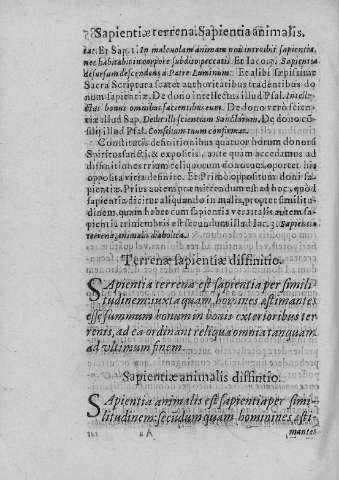 Sapientiæ terrena. Sapientia animalis.
tat. Et Sap. 1. In maleuolam animam non introibit sapientia,
nec habitabit in corpore subdito peccatis. Et Iaco. 3. Sapientia
desursum descendens a Patre Luminum. Et alibi sæpissime
Sacra Scriptura scatet authoritatibus tradentibus do
num Sapientiæ. De dono intellectus illud Psal. Intelle-
ctus bonus omnibus facientibus eum. De dono vero scien-
tiæ illud Sap. Dedit illi scientiam Sanctorum. De dono con
silij illud Psal. Consilium tuum confirmet.
Constitutis definitionibus quatuor horum donorũ
Spiritus sancti, & expositis, ante quam accedamus ad
diffinitiones trium reliquorum donorum, oportet his
opposita vitia definire. Et Primo oppositum doni sa-
pientiæ. Prius autem præmittendum est ad hoc, quòd
sapientia dicitur aliquando in malis, propter similitu-
dinem, quam habet cum sapientia vera: talis autem sa-
pientia trimembris est secundum illud Iac. 3. Sapientia
terrena, animalis diabolica.
Terrenæ sapientiæ diffinitio.
SApientia terrena est sapientia per simili-
tudinem: iuxta quam, homines æstimantes
esse summum bonum in bonis exterioribus ter
renis, ad ea ordinant reliqua omnia tanquam
ad vltimum finem.
Sapientiæ animalis diffinitio.
SApientia animalis est sapientia per simi-
litudinem: secũdum quam homines æsti-
mantes